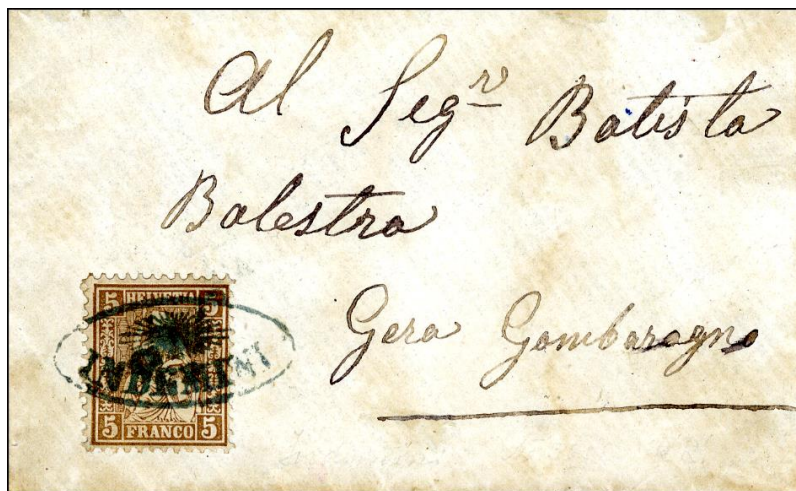 Al Segr Batista
Balestra
Gera Gambarogno
5 HELVETIA 5
INDEMINI
5 FRANCO 5